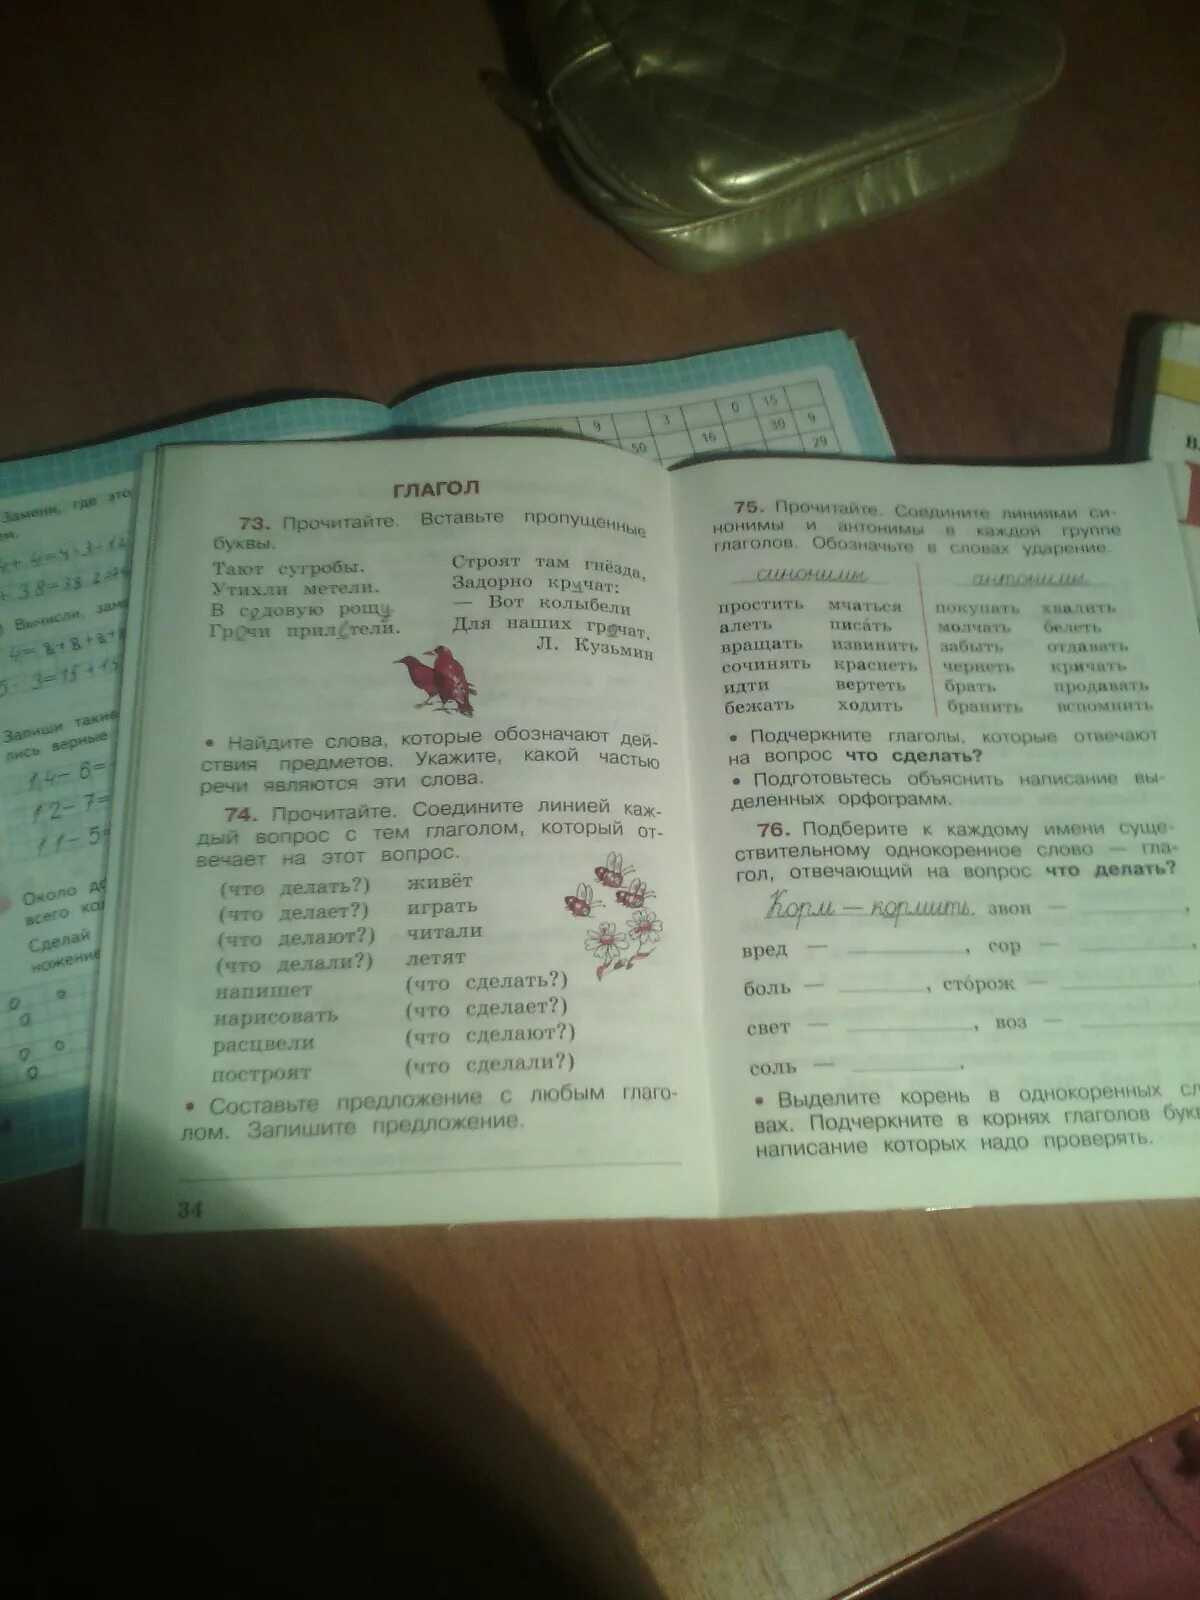 ГЛАГОЛ
73. Прочитайте. Вставьте пропущенные
буквы.
Тают сугробы.
Утихли метели.
В садовую рощу
Грачи прилетели.
Строят там гнёзда,
Задорно кричат:
— Вот колыбели
Для наших грачат.
Л. Кузьмин
• Найдите слова, которые обозначают дей-
ствия предметов. Укажите, какой частью
речи являются эти слова.
74. Прочитайте. Соедините линией каж-
дый вопрос с тем глаголом, который от-
вечает на этот вопрос.
(что делать?) живёт
(что делает?) играть
(что делают?) читали
(что делали?) летят
напишет (что сделать?)
нарисовать (что сделает?)
расцвели (что сделают?)
построят (что сделали?)
• Составьте предложение с любым глаго-
лом. Запишите предложение.
34
75. Прочитайте. Соедините линиями си-
нонимы и антонимы в каждой группе
глаголов. Обозначьте в словах ударение.
синонимы антонимы
простить мчаться покупать хвалить
алеть писа́ть молчать белеть
вращать извинить забыть отдавать
сочинять краснеть чернеть кричать
идти вертеть брать продавать
бежать ходить бранить вспомнить
• Подчеркните глаголы, которые отвечают
на вопрос что сделать?
• Подготовьтесь объяснить написание вы-
деленных орфограмм.
76. Подберите к каждому имени суще-
ствительному однокоренное слово — гла-
гол, отвечающий на вопрос что делать?
Корм — кормить, звон — ,
вред — , сор — ,
боль — , сто́рож —
свет — , воз —
соль — .
• Выделите корень в однокоренных сл
вах. Подчеркните в корнях глаголов бук
написание которых надо проверять.
Замени, где это
Вычисли, зам
Запиши такие
лись верные
14-6=
12-7=
11-5=
Около до
всего ко
Сделай
ножение
9 3 0 15
50 16 30 9
29